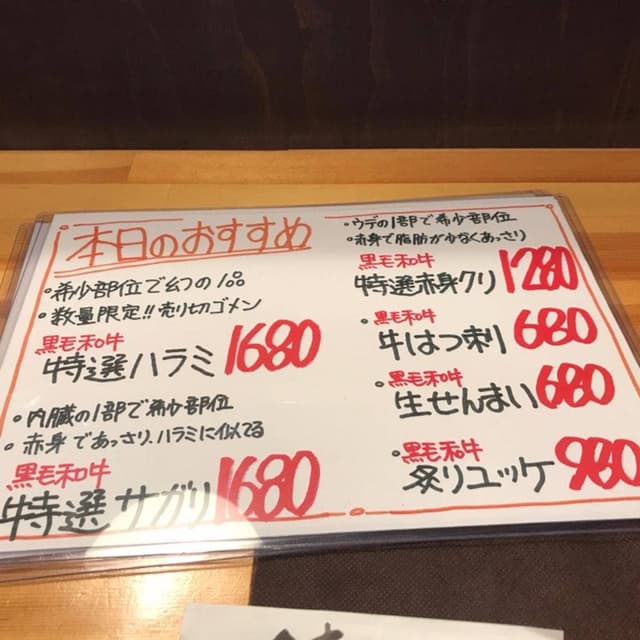 本日のおすすめ
・希少部位で幻の1品
・数量限定!!売り切ゴメン
黒毛和牛
特選ハラミ 1680
・内臓の1部で希少部位
・赤身であっさり、ハラミに似てる
黒毛和牛
特選サガリ 1680
・ウデの1部で希少部位
・赤身で脂肪が少なくあっさり
黒毛和牛
特選赤身クリ 1280
・黒毛和牛
牛はつ刺 680
・黒毛和牛
生せんまい 680
・黒毛和牛
炙りユッケ 980